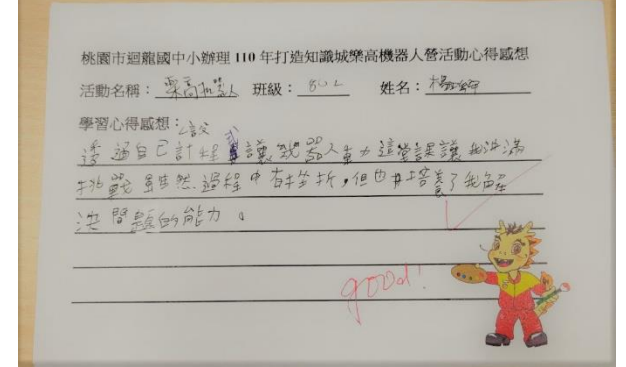 桃園市迴龍國中小辦理 110 年打造知識城樂高機器人營活動心得感想
活動名稱：樂高機器人 班級：802 姓名：楊
學習心得感想：
透過自己設計程式讓機器人動力這堂課讓我充滿
挑戰 雖然過程中有挫折，但也培養了我解
決問題的能力。
good!